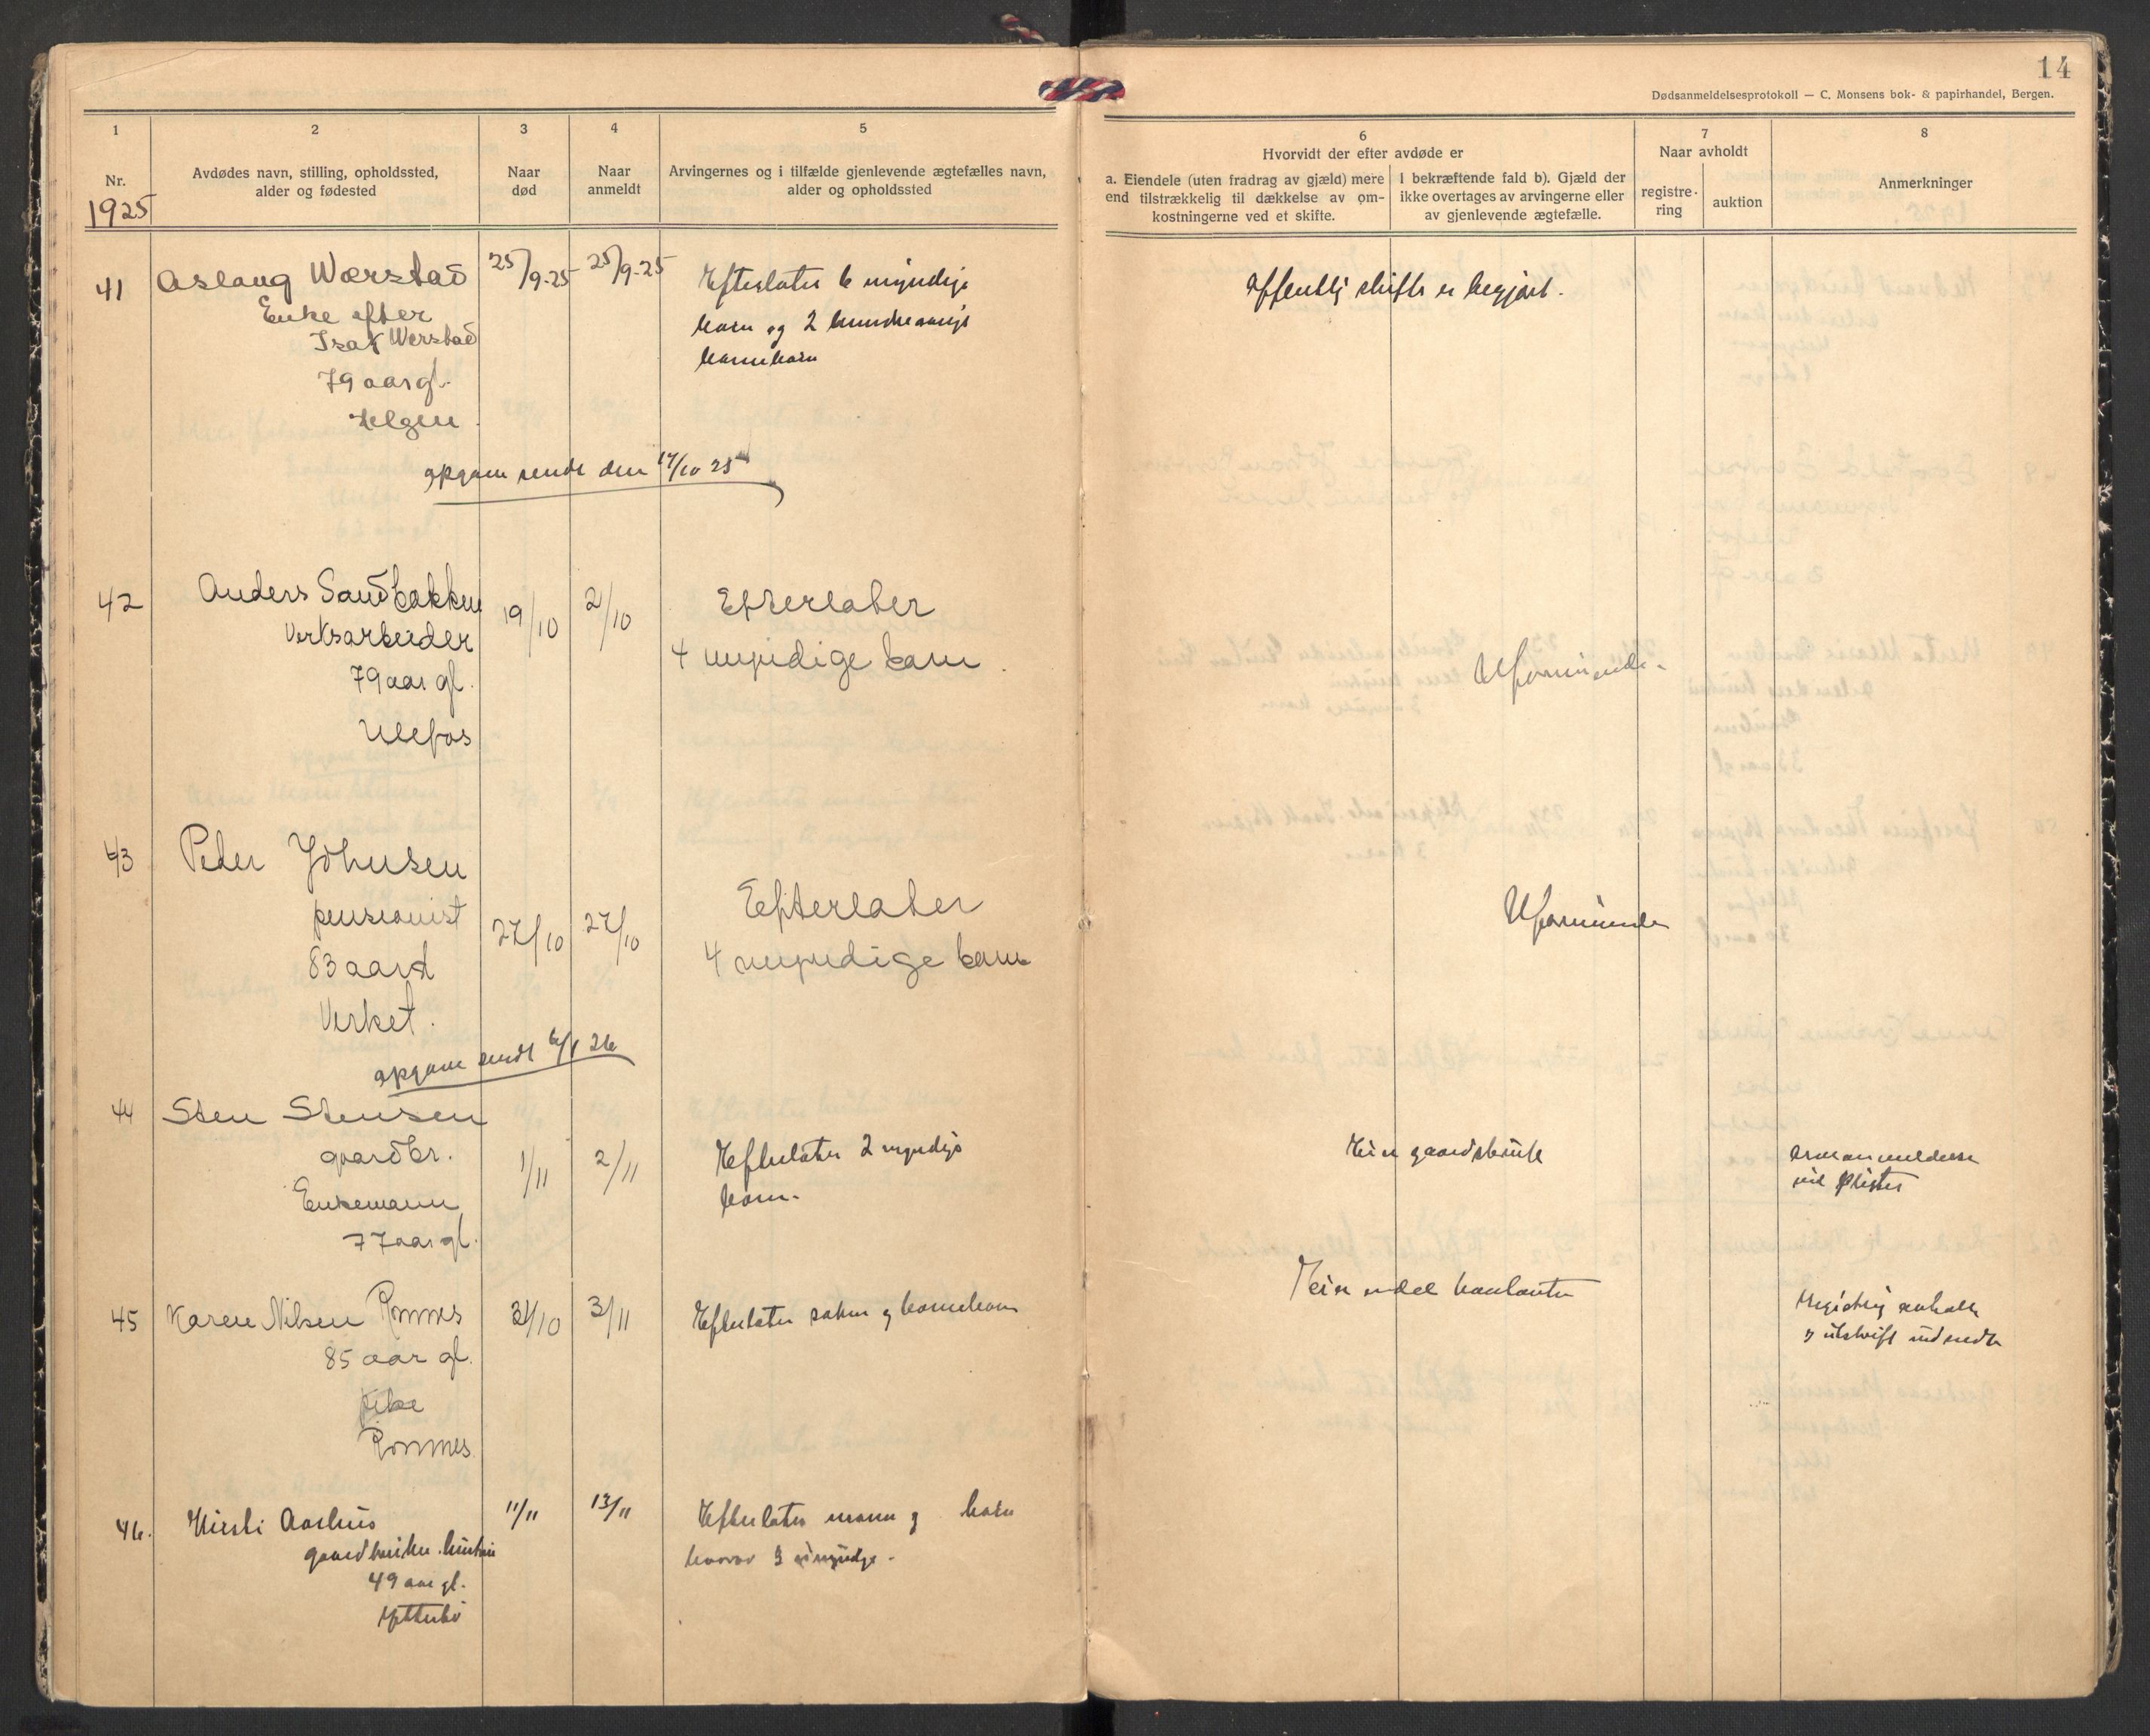 14
Dødsanmeldelsesprotokoll — C. Monsens bok- & papirhandel, Bergen.
1
Nr.
1925
2
Avdødes navn, stilling, opholdssted,
alder og fødested
3
Naar
død
4
Naar
anmeldt
5
Arvingernes og i tilfælde gjenlevende ægtefælles navn,
alder og opholdssted
6
Hvorvidt der efter avdøde er
a. Eiendele (uten fradrag av gjæld) mere
end tilstrækkelig til dækkelse av om-
kostningerne ved et skifte.
I bekræftende fald b). Gjæld der
ikke overtages av arvingerne eller
av gjenlevende ægtefælle.
7
Naar avholdt
registre-
ring
auktion
8
Anmerkninger
41
Aslaug Wærstad
Enke efter
Isak Werstad
79 aar gl.
Helgen
25/9-25
25/9-25
Efterlater 6 myndige
barn og 2
barnebarn
Offentlig skifte er begjært.
opgave sendt den 17/10 25
42
Anders Sandbakken
Verksarbeider
79 aar gl.
Ulefos
19/10
2/10
Efterlater
4 myndige barn.
Uformuende
43
Peder Johnsen
pensionist
83 aar
Verket.
27/10
27/10
Efterlater
4 myndige barn
Uformuende
opgave sendt 6/1 26
44
Sten Stensen
gaardbr.
Enkemann
77 aar gl.
1/11
2/11
Efterlater 2 myndige
barn.
Eier gaardsbruk
45
Karen Nilsen Romnes
85 aar gl.
Romnes
31/10
3/11
Efterlater og barnebarn
Eier endel kontanter
utskrift utsendt
46.
Kirsti Aarhus
gaardbruker hustru
49 aar gl.
Ytterbø
11/11
13/11
Efterlater mann og barn
hvorav 3 umyndige.